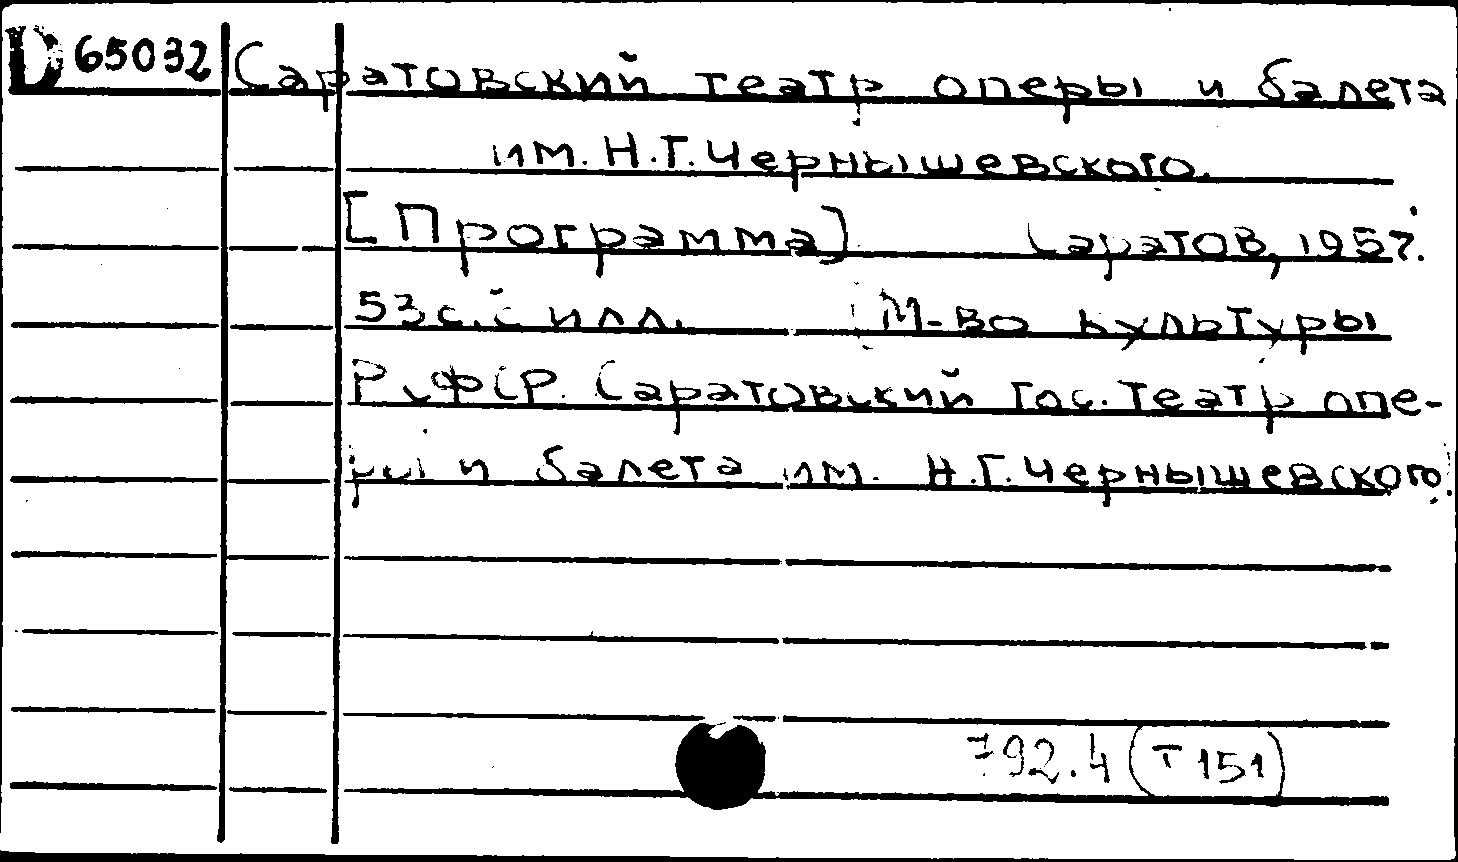 D 65032 Саратовский театр оперы и балета
им. Н.Г. Чернышевского.
[Программа] Саратов, 1957.
53 с. с илл. М-во культуры
РСФСР. Саратовский Гос. театр опе-
ры и балета им. Н.Г. Чернышевского.
792.4 (Т151)